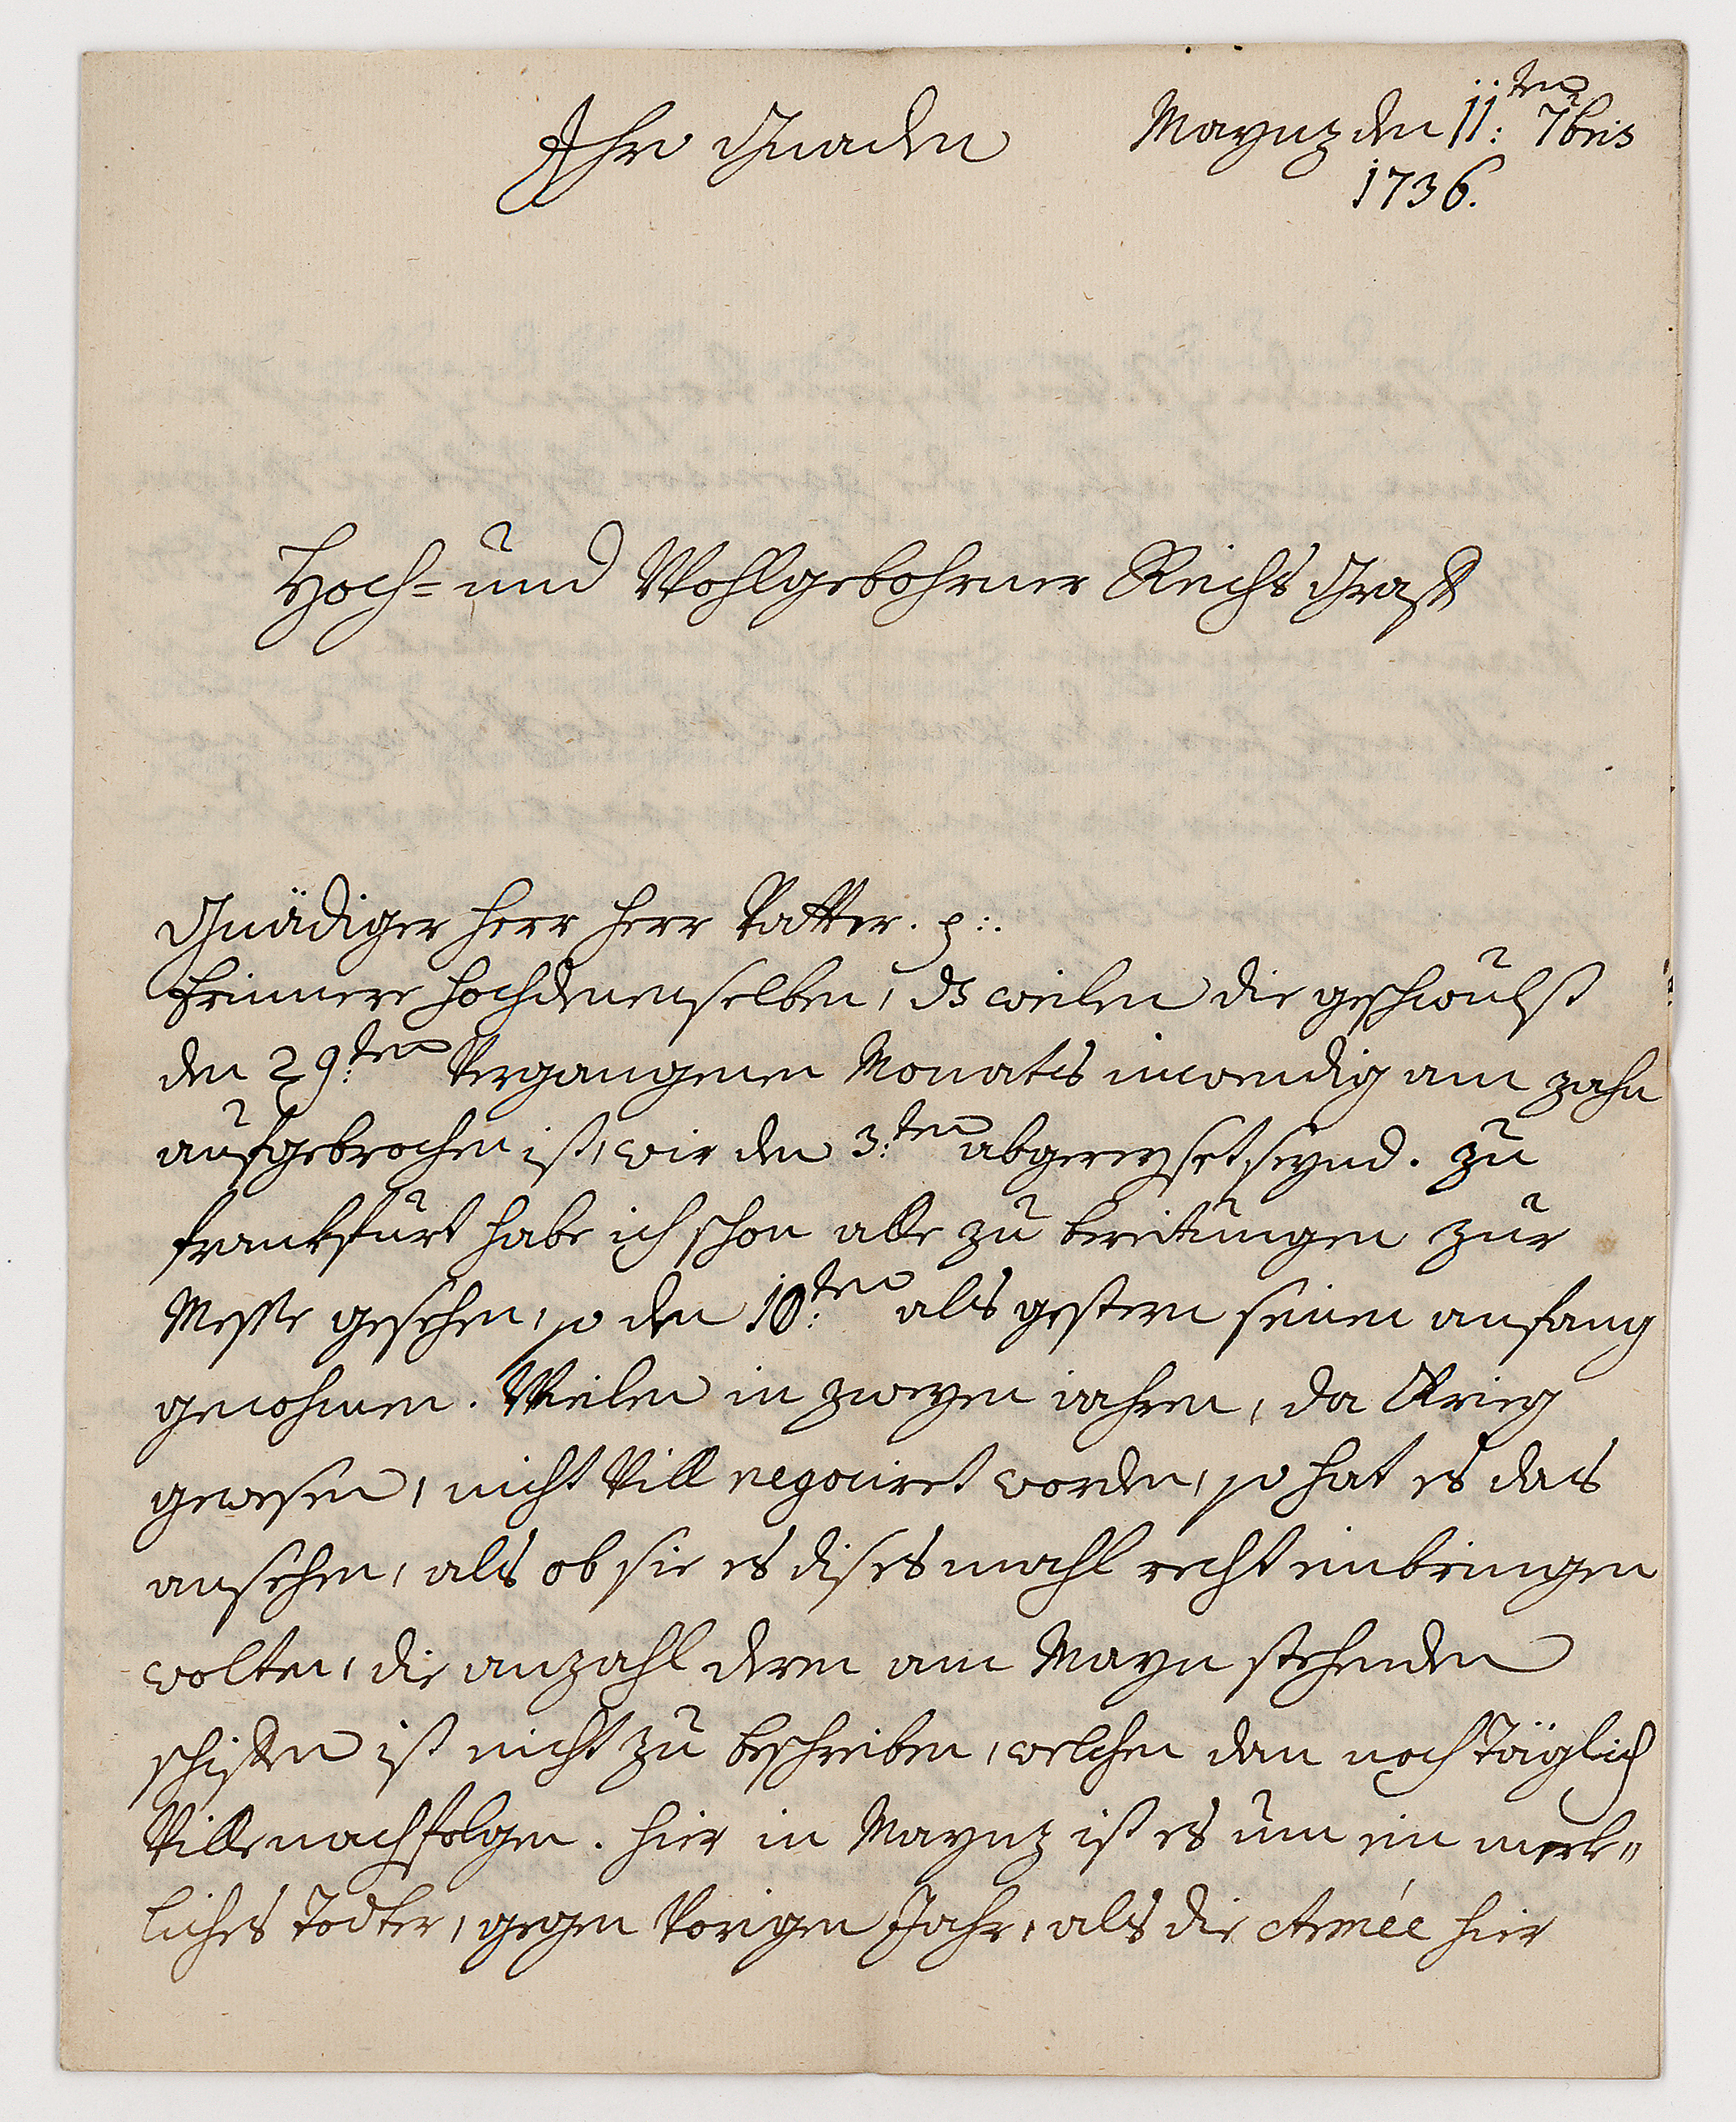 Ihro Gnaden
Maynz den 11:ten 7bris
1736.
Hoch= und Wohlgebohrner Reichs Graff
Gnädiger Herr Herr Vatter. p:.
Erinnere hochdenenselben, ds weilen die geschwulst
den 29:ten Vergangenen Monats inwendig am zahn
aufgebrochen ist, wir den 3:ten abgereyset seynd. zu
franckfurt habe ich schon alle zu bereitungen zur
Messe gesehen, so den 10:ten als gestern seinen anfang
genohmen. Weilen in zweyen iahren, da Krieg
gewesen, nicht Vill negociret worden, so hat es das
ansehen, als ob sie es dises mahl recht einbringen
wolten, die anzahl deren am Mayn stehenden
schiffen ist nicht zu beschreiben, welchen dan noch Täglich
Ville nachfolgen. hier in Maynz ist es um ein merk„
liches Todter, gegen Vorigen Jahr, als die Armée hier